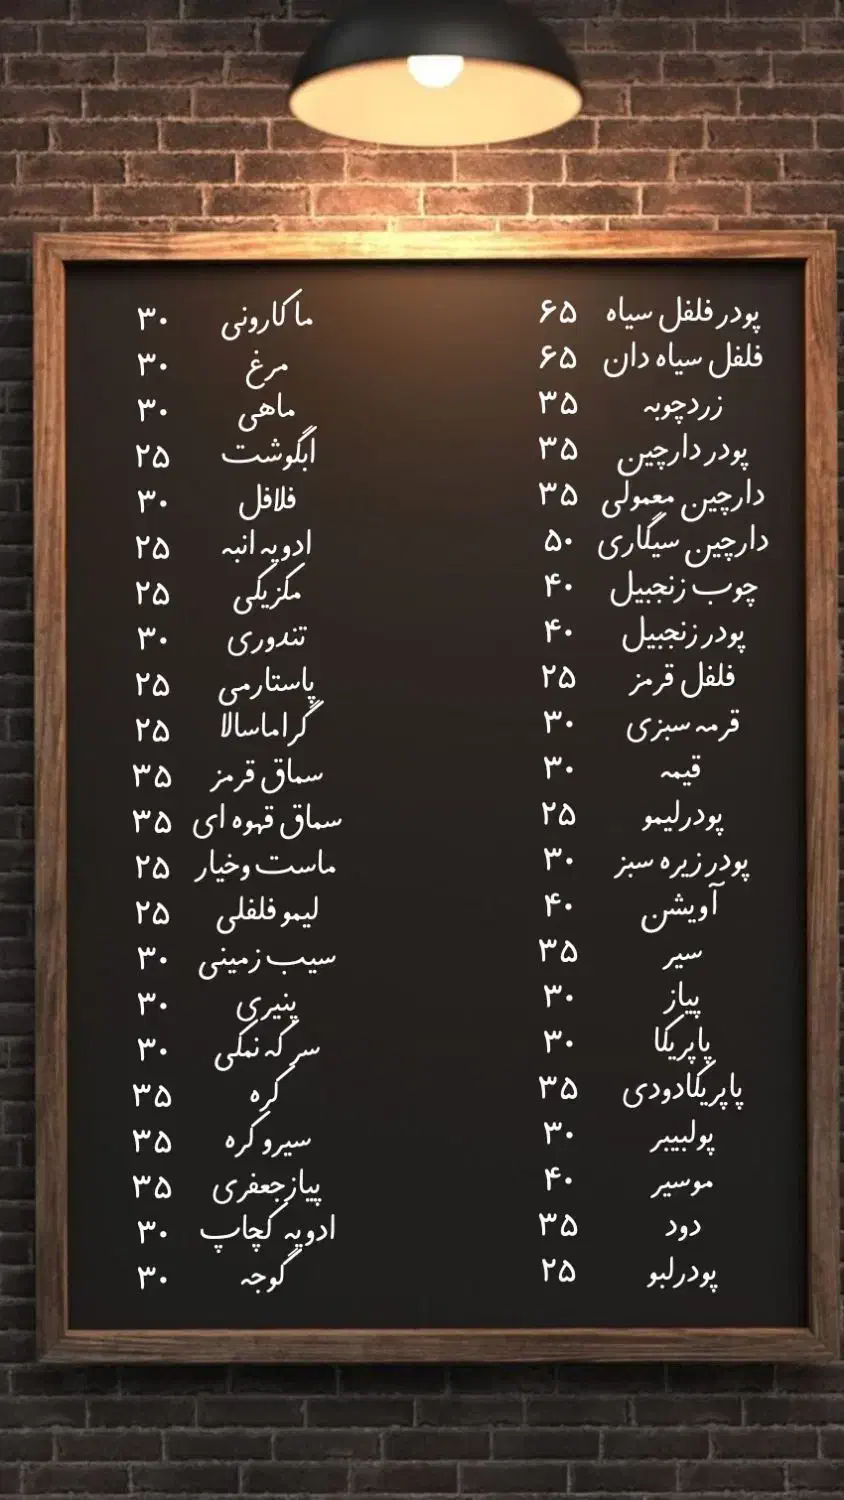 پودر فلفل سیاه ۶۵
فلفل سیاه دان ۶۵
زردچوبه ۳۵
پودر دارچین ۳۵
دارچین معمولی ۳۵
دارچین سیگاری ۵۰
چوب زنجبیل ۴۰
پودر زنجبیل ۴۰
فلفل قرمز ۲۵
قرمه سبزی ۳۰
قیمه ۳۰
پودرلیمو ۲۵
پودر زیره سبز ۳۰
آویشن ۴۰
سیر ۳۵
پیاز ۳۰
پاپریکا ۳۰
پاپریکادودی ۳۵
پولبیبر ۳۰
موسیر ۴۰
دود ۳۵
پودرلبو ۲۵
ماکارونی ۳۰
مرغ ۳۰
ماهی ۳۰
ابگوشت ۲۵
فلافل ۳۰
ادویه انبه ۲۵
مکزیکی ۲۵
تندوری ۳۰
پاستارمی ۲۵
گراماسالا ۲۵
سماق قرمز ۳۵
سماق قهوه ای ۳۵
ماست وخیار ۲۵
لیمو فلفلی ۲۵
سیب زمینی ۳۰
پنیری ۳۰
سرکه نمکی ۳۰
کره ۳۵
سیر و کره ۳۵
پیازجعفری ۳۵
ادویه کچاپ ۳۰
گوجه ۳۰